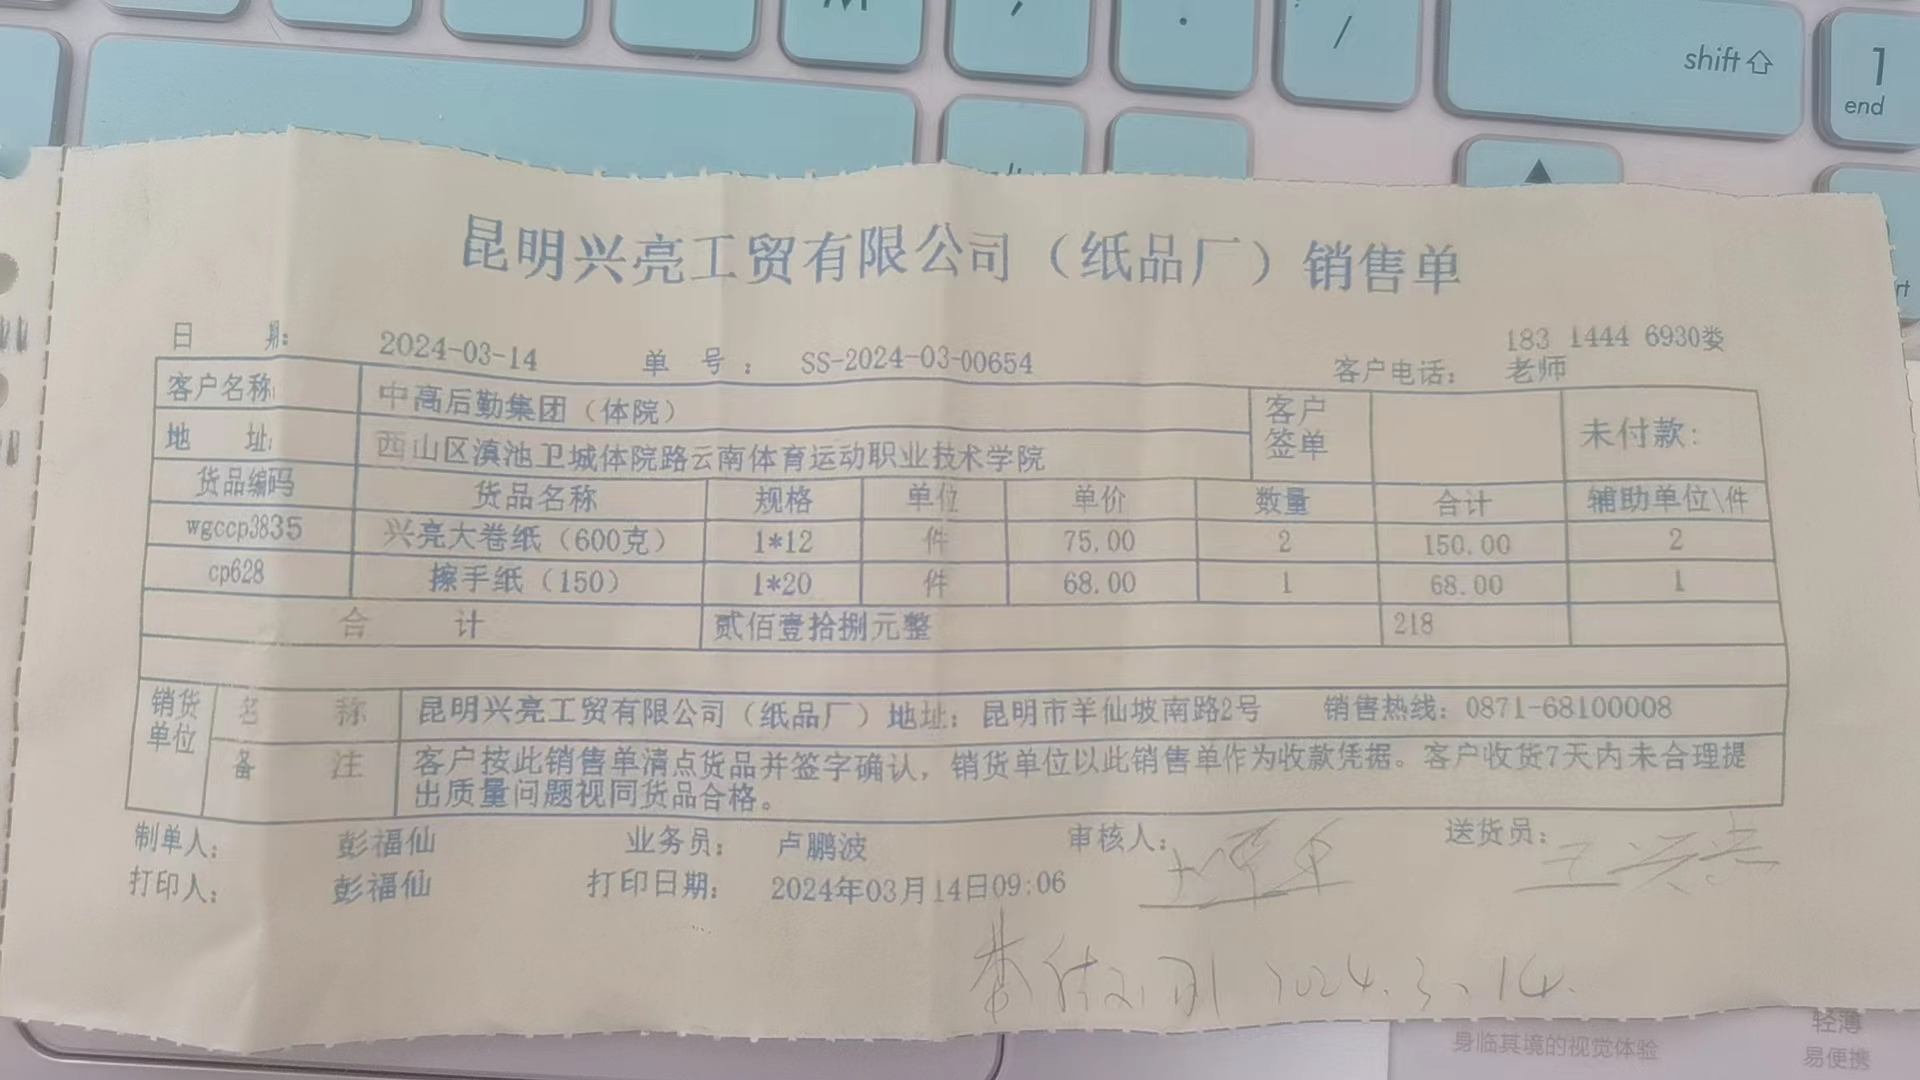 shift
1
end
昆明兴亮工贸有限公司（纸品厂）销售单
日 期: 2024-03-14 单 号： SS-2024-03-00654 客户电话： 183 1444 6930娄老师
客户名称 中高后勤集团（体院） 客户签单 未付款：
地 址: 西山区滇池卫城体院路云南体育运动职业技术学院
货品编码 货品名称 规格 单位 单价 数量 合计 辅助单位\件
wgccp3835 兴亮大卷纸（600克） 1*12 件 75.00 2 150.00 2
cp628 擦手纸（150） 1*20 件 68.00 1 68.00 1
合 计 贰佰壹拾捌元整 218
销货单位 名 称 昆明兴亮工贸有限公司（纸品厂）地址：昆明市羊仙坡南路2号 销售热线：0871-68100008
备 注 客户按此销售单清点货品并签字确认，销货单位以此销售单作为收款凭据。客户收货7天内未合理提
出质量问题视同货品合格。
制单人： 彭福仙 业务员： 卢鹏波 审核人： 送货员：
打印人： 彭福仙 打印日期： 2024年03月14日09:06
2024.3.14.
身临其境的视觉体验
轻薄
易便携